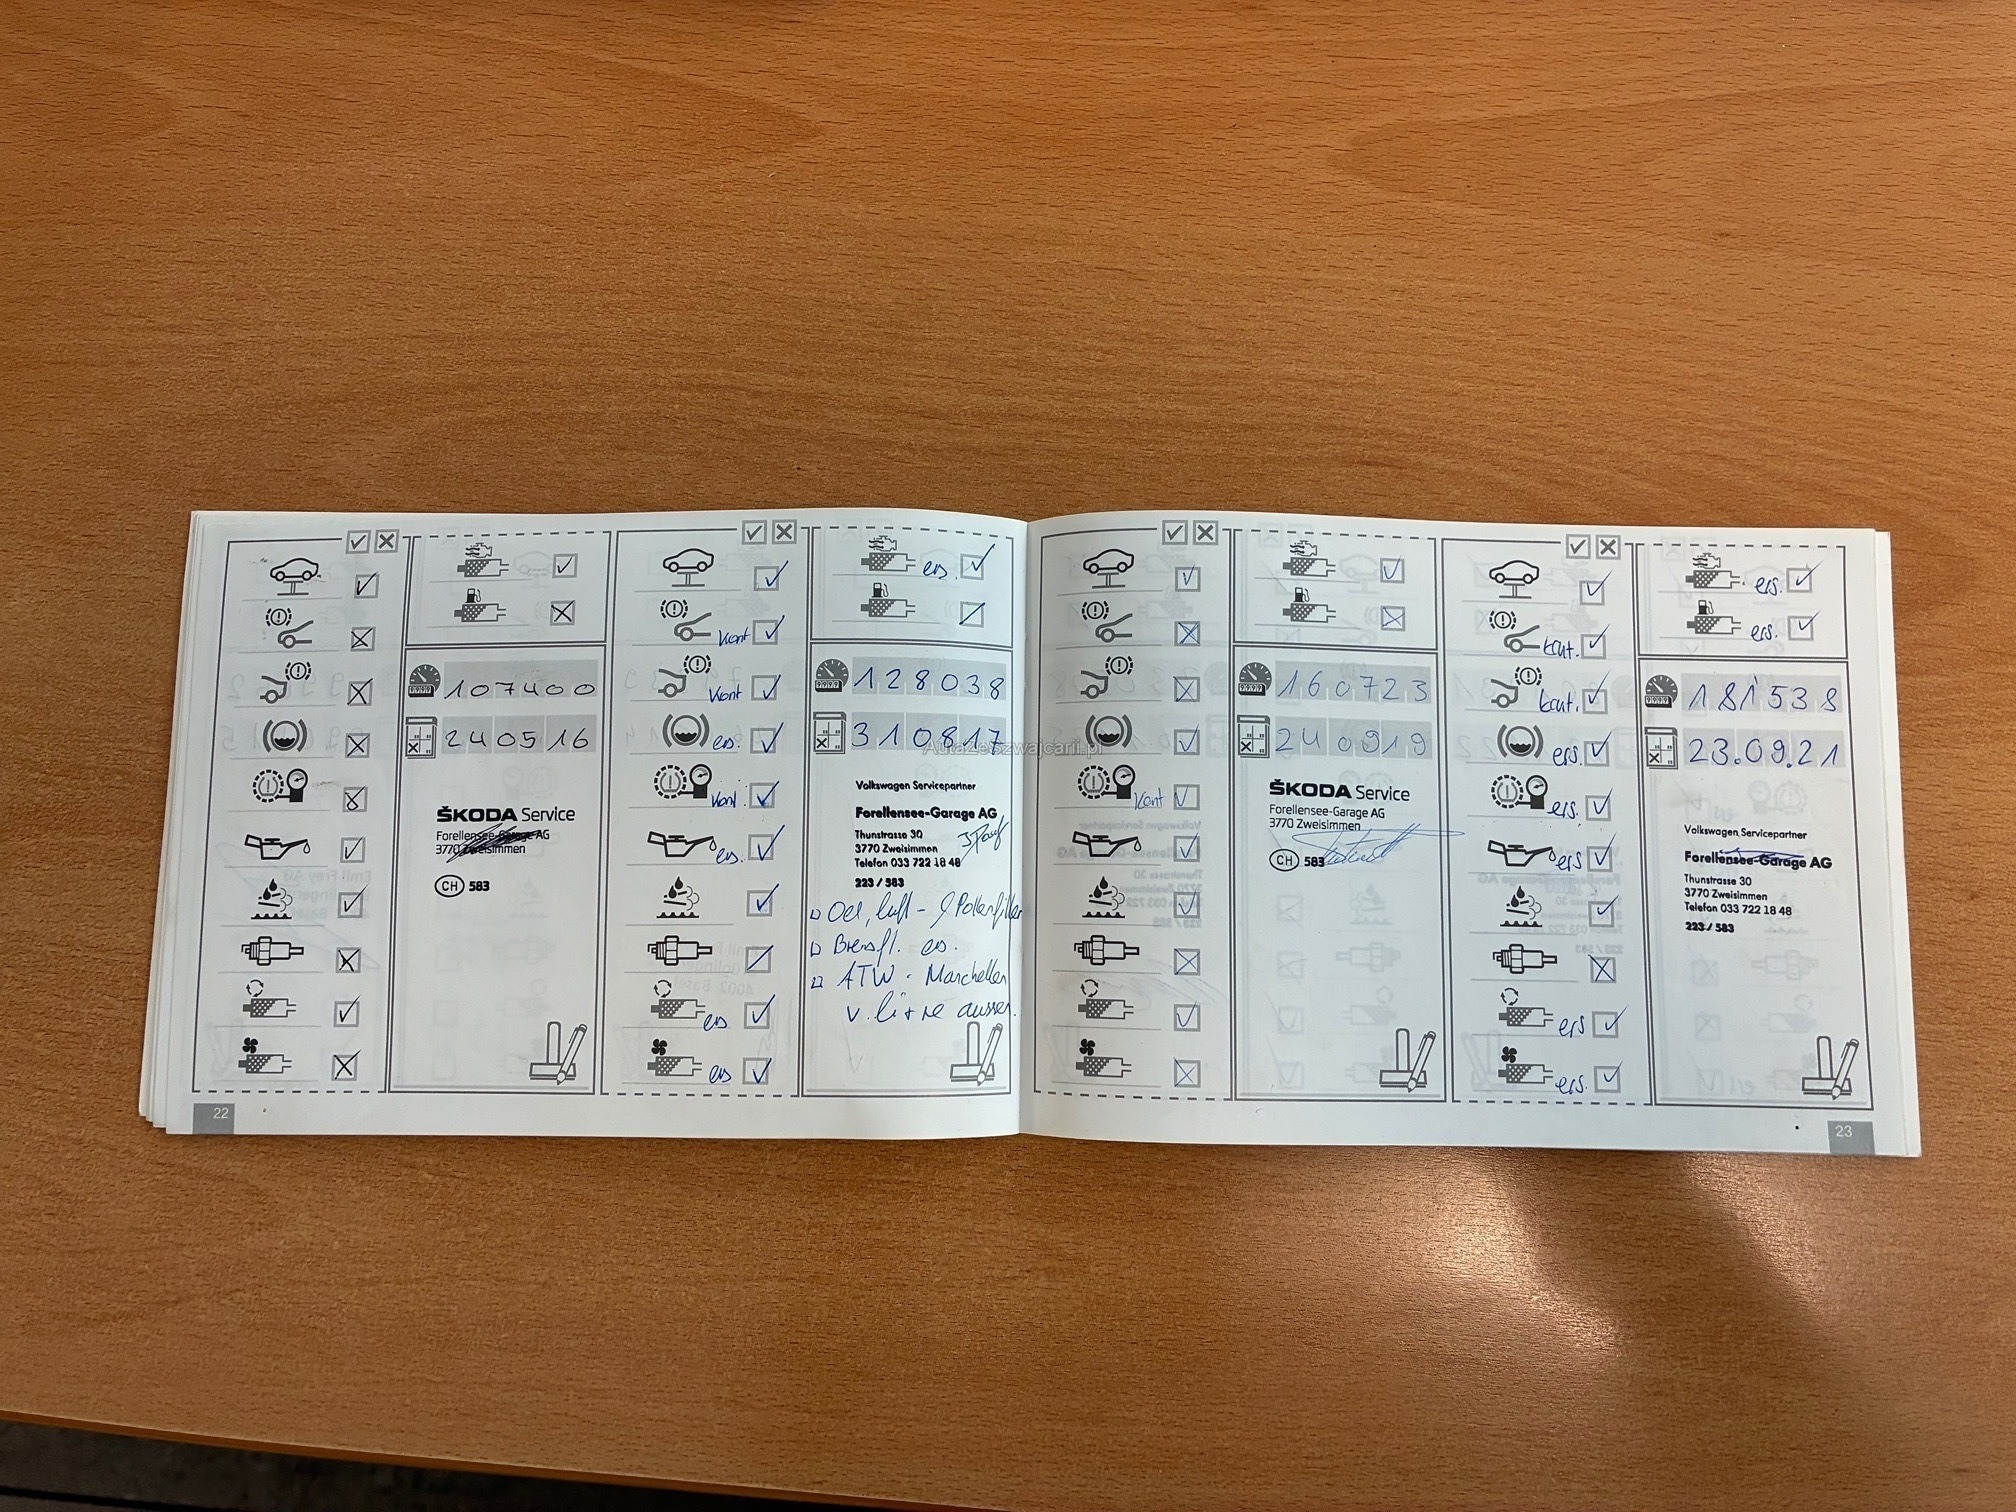 107400
240516
ŠKODA Service
Forellensee-Garage AG
3770 Zweisimmen
CH 583
22
ers.
Kont
Kont
ers.
Kont.
ers.
ers
ers
128038
310817
AutaZeSzwajcarii.pl
Volkswagen Servicepartner
Forellensee-Garage AG
Thunstrasse 30
3770 Zweisimmen
Telefon 033 722 18 48
223 / 583
Oel, Luft - & Pollenfilter
Bremsfl. ers.
ATW - Manchetten
v. li + re aussen.
Kont
160723
240919
ŠKODA Service
Forellensee-Garage AG
3770 Zweisimmen
CH 583
ers.
ers.
kont.
kont.
ers.
ers.
ers
ers
ers.
181538
23.09.21
Volkswagen Servicepartner
Forellensee-Garage AG
Thunstrasse 30
3770 Zweisimmen
Telefon 033 722 18 48
223 / 583
23